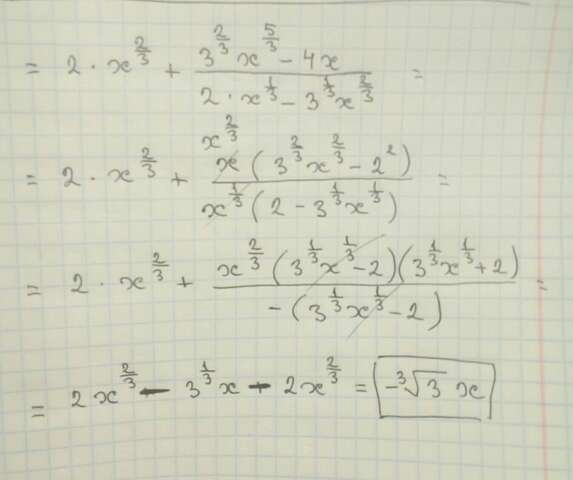 = 2 · x^(2/3) + (3^(2/3) x^(5/3) - 4x) / (2 · x^(1/3) - 3^(1/3) x^(2/3)) =
x^(2/3)
= 2 · x^(2/3) + x (3^(2/3) x^(2/3) - 2^2) / (x^(1/3) (2 - 3^(1/3) x^(1/3))) =
= 2 · x^(2/3) + x^(2/3) (3^(1/3) x^(1/3) - 2)(3^(1/3) x^(1/3) + 2) / (-(3^(1/3) x^(1/3) - 2)) =
= 2x^(2/3) - 3^(1/3) x - 2x^(2/3) = -∛3 x